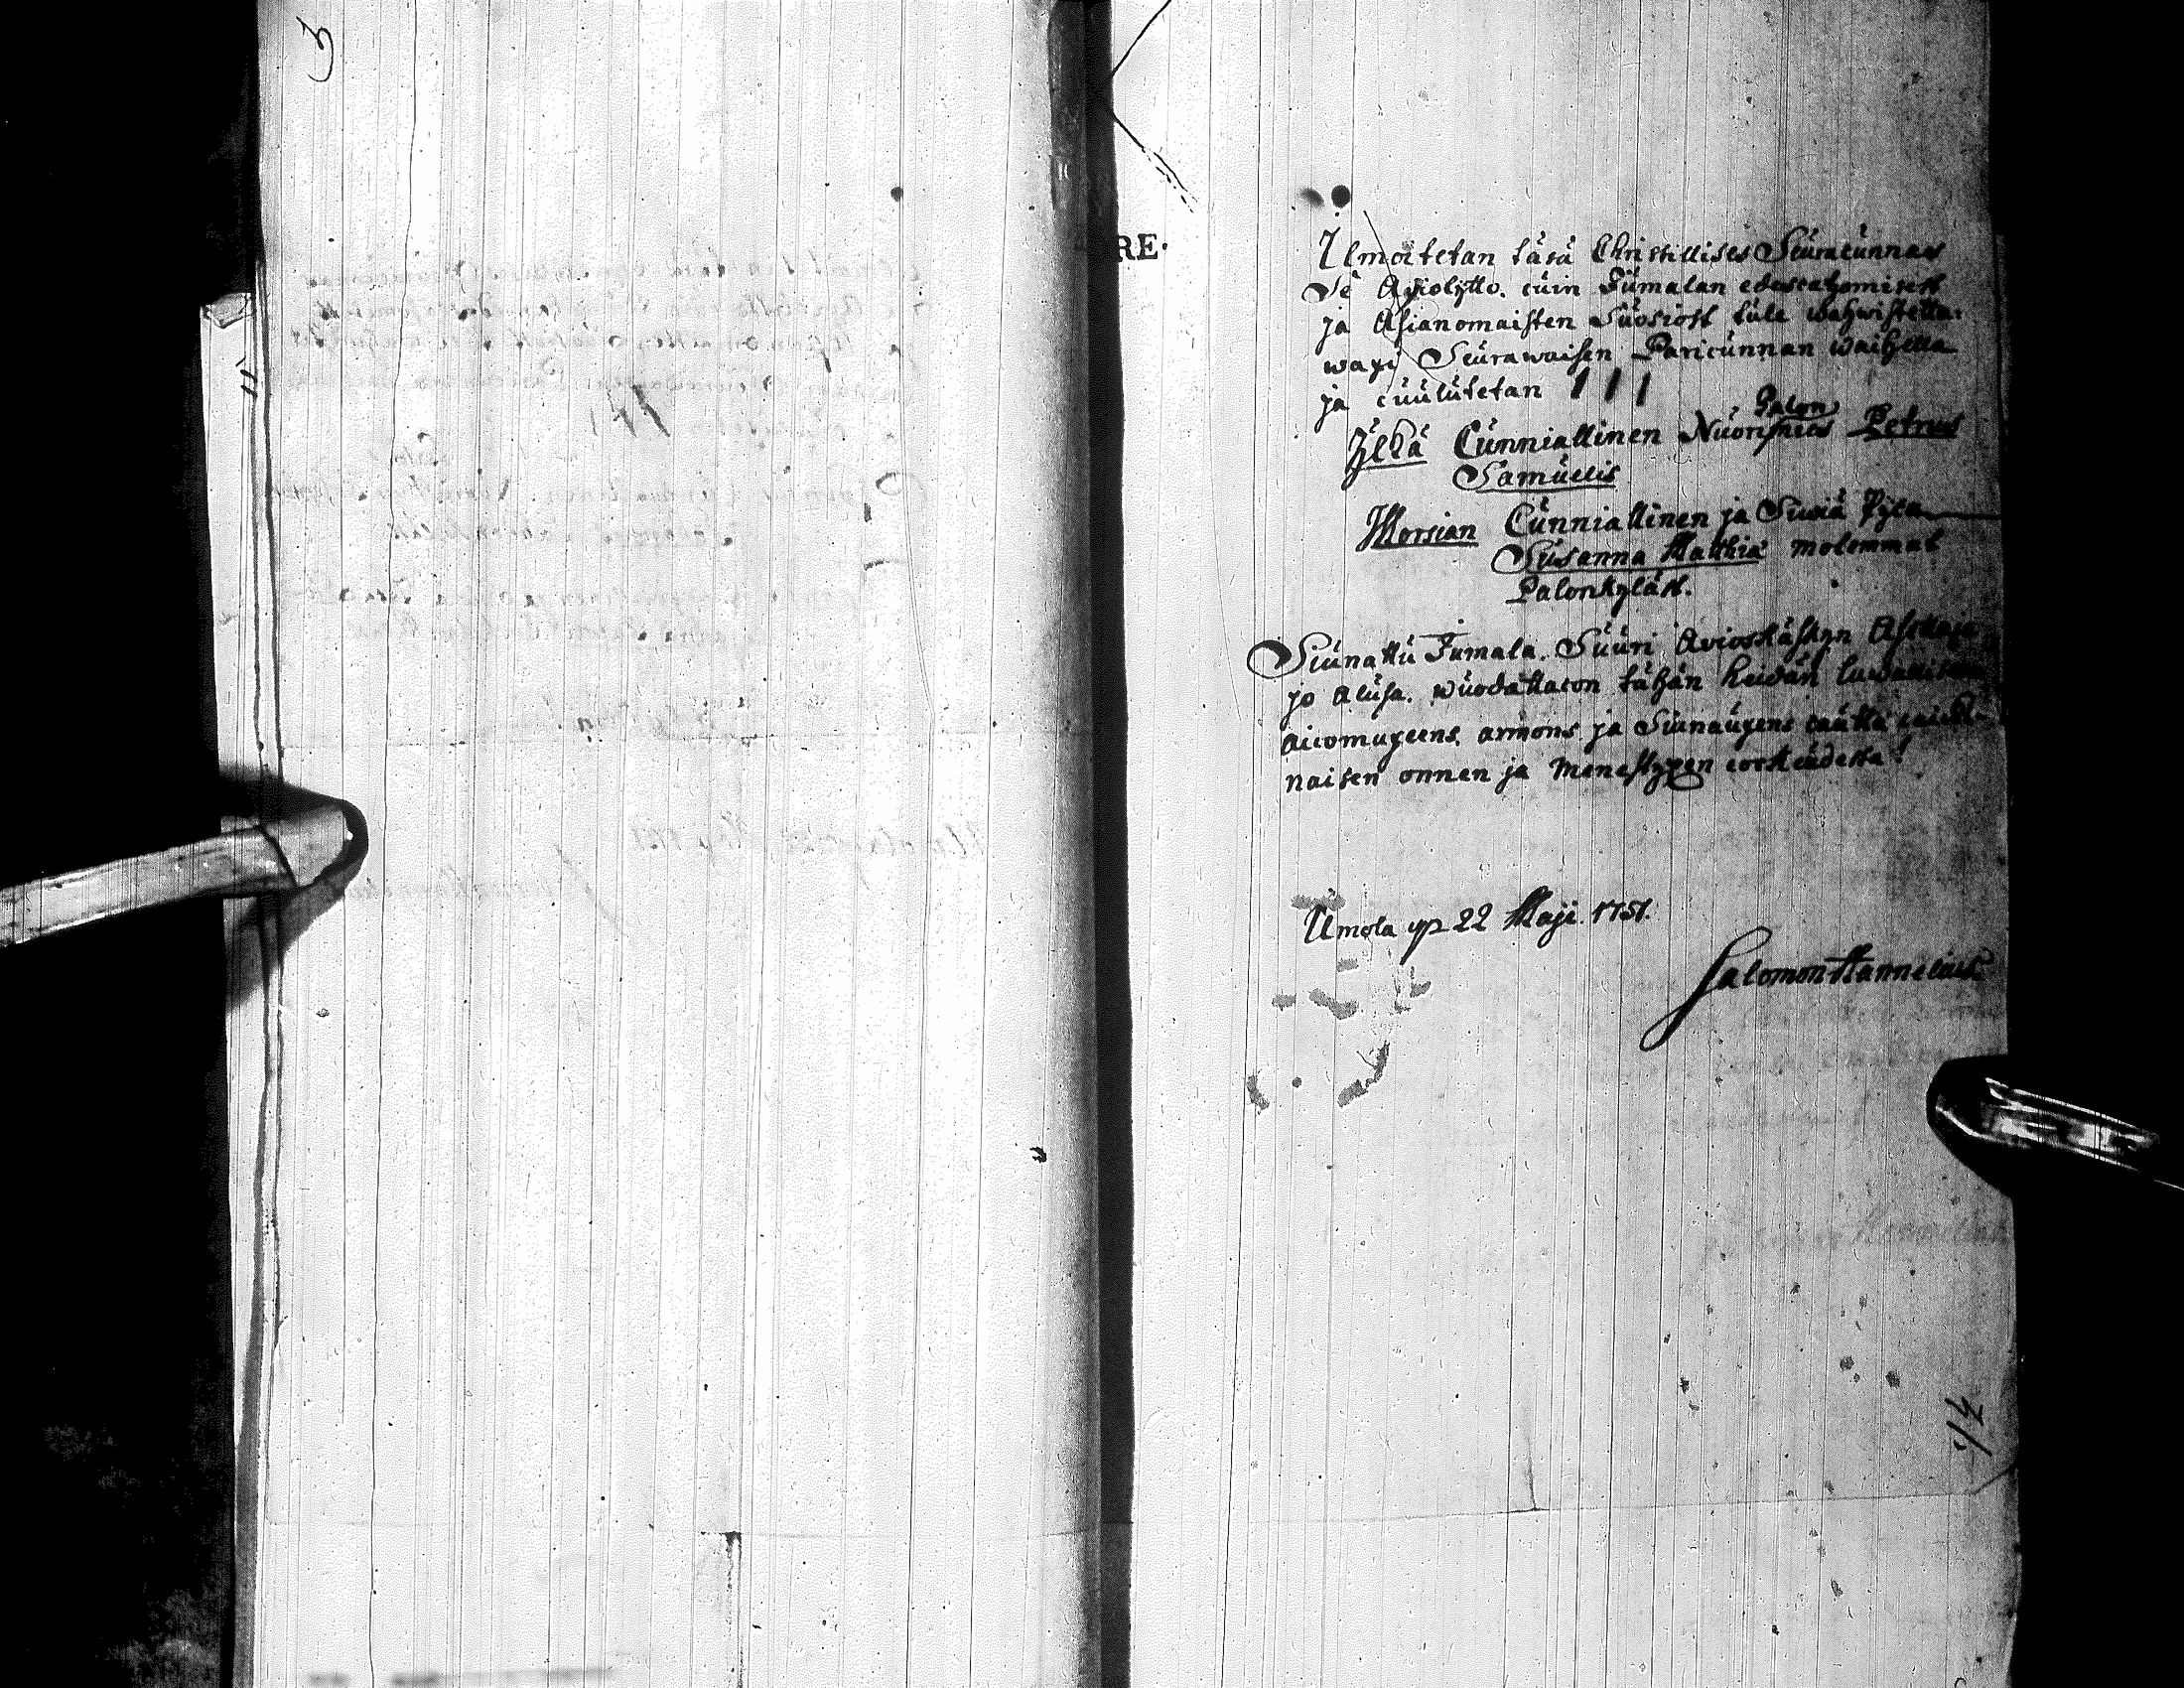 3
11
RE.
Ilmoitetan täsä Christillises Seuracunnas
Se Aviolijtto. cuin Jumalan edescatzomisest
ja Asianomaisten Suosiost tule wahwistetta-
waxi Seurawaisen Paricunnan waihella
ja cuulutetan 1 1 1
Palon
Yljkä Cunniallinen Nuorimies Petrus
Samuelis
Morsian Cunniallinen ja Siwiä Pijca
Susanna Matthiæ molemmat
Palonkyläst.
Siunattu Jumala. Suuri Avioskäskyn Asettaja
jo Alusa. wuodattacon tähän heidän
aicomuxeens armons ja Siunauxens cautta
naisen onnen ja menestyxen
Umola yp 22 Maji. 1751.
Salomon Hannelius
14